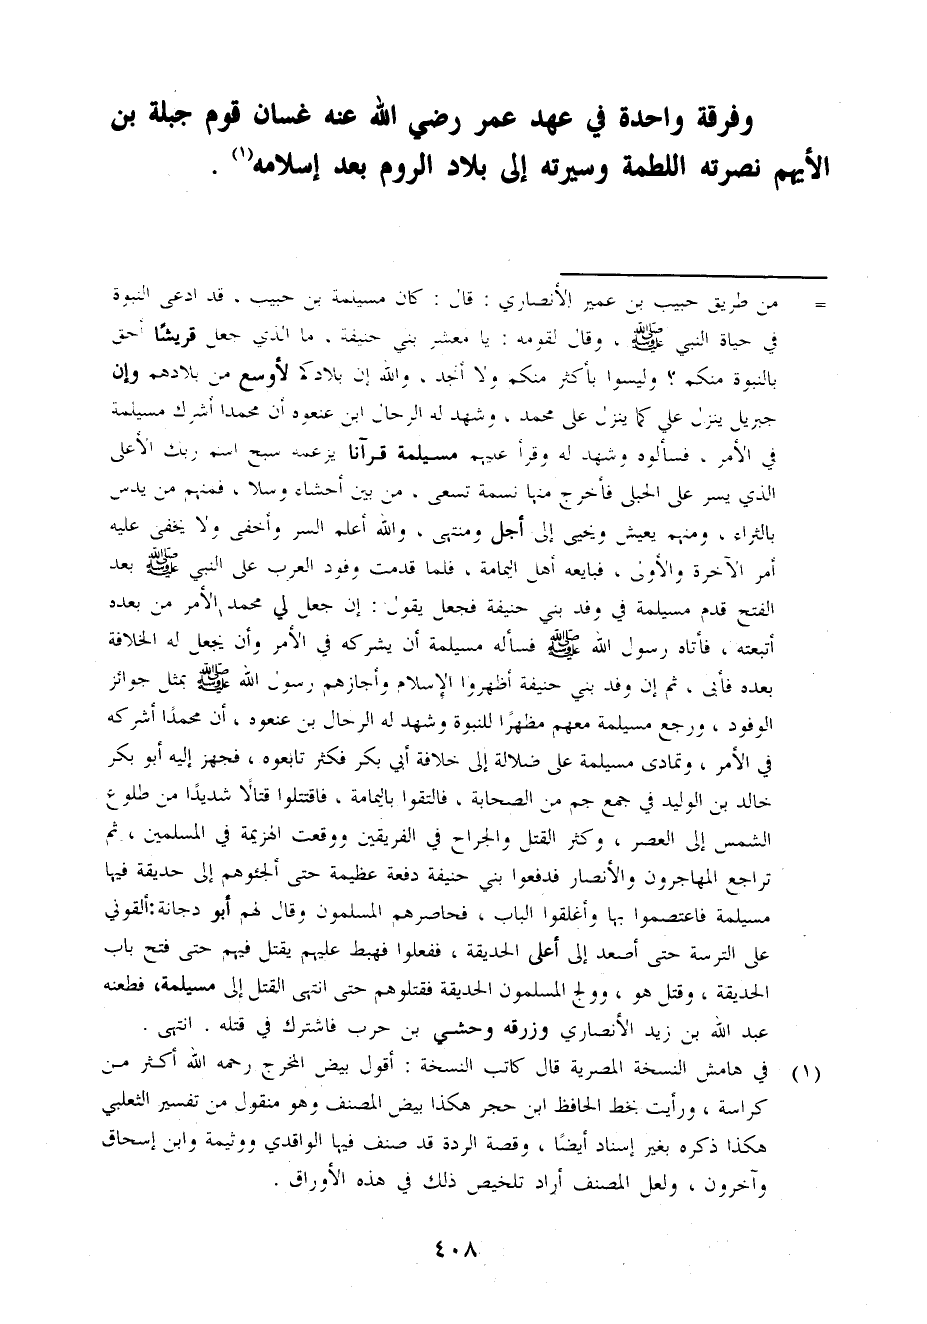 وفرقة واحدة في عهد عمر رضي الله عنه غسان قوم جبلة بن
الأيهم نصرته اللطمة وسيرته إلى بلاد الروم بعد إسلامه(١) .
= من طريق حبيب بن عمير الأنصاري : قال : كان مسيلمة بن حبيب . قد ادعى النبوة
في حياة النبي ﷺ ، وقال لقومه : يا معشر بني حنيفة . ما الذي جعل قريشًا أحق
بالنبوة منكم ؟ وليسوا بأكثر منكم ولا أنجد . والله إن بلادكم لأوسع من بلادهم وإن
جبريل ينزل علي كما ينزل على محمد ، وشهد له الرحال ابن عنعوه أن محمدا أشرك مسيلمة
في الأمر ، فسألوه وشهد له وقرأ عليهم مسيلمة قرآنا يزعمه سبح اسم ربك الأعلى
الذي يسر على الحبلى فأخرج منها نسمة تسعى ، من بين أحشاء وسلا ، فمنهم من يدس
بالثراء ، ومنهم يعيش ويحيى إلى أجل ومنتهى ، والله أعلم السر وأخفى ولا يخفى عليه
أمر الآخرة والأولى ، فبايعه أهل اليمامة ، فلما قدمت وفود العرب على النبي ﷺ بعد
الفتح قدم مسيلمة في وفد بني حنيفة فجعل يقول : إن جعل لي محمد الأمر من بعده
أتبعته ، فأتاه رسول الله ﷺ فسأله مسيلمة أن يشركه في الأمر وأن يجعل له الخلافة
بعده فأبى ، ثم إن وفد بني حنيفة أظهروا الإسلام وأجازهم رسول الله ﷺ بمثل جوائز
الوفود ، ورجع مسيلمة معهم مظهرًا للنبوة وشهد له الرحال بن عنعوه ، أن محمدًا أشركه
في الأمر ، وتمادى مسيلمة على ضلالة إلى خلافة أبي بكر فكثر تابعوه ، فجهز إليه أبو بكر
خالد بن الوليد في جمع جم من الصحابة ، فالتقوا باليمامة ، فاقتتلوا قتالًا شديدًا من طلوع
الشمس إلى العصر ، وكثر القتل والجراح في الفريقين ووقعت الهزيمة في المسلمين ، ثم
تراجع المهاجرون والأنصار فدفعوا بني حنيفة دفعة عظيمة حتى ألجئوهم إلى حديقة فيها
مسيلمة فاعتصموا بها وأغلقوا الباب ، فحاصرهم المسلمون وقال لهم أبو دجانة:ألقوني
على الترسة حتى أصعد إلى أعلى الحديقة ، ففعلوا فهبط عليهم يقتل فيهم حتى فتح باب
الحديقة ، وقتل هو ، وولج المسلمون الحديقة فقتلوهم حتى انتهى القتل إلى مسيلمة، فطعنه
عبد الله بن زيد الأنصاري وزرقه وحشي بن حرب فاشترك في قتله . انتهى .
(١) في هامش النسخة المصرية قال كاتب النسخة : أقول بيض المخرج رحمه الله أكثر من
كراسة ، ورأيت بخط الحافظ ابن حجر هكذا بيض المصنف وهو منقول من تفسير الثعلبي
هكذا ذكره بغير إسناد أيضًا ، وقصة الردة قد صنف فيها الواقدي ووثيمة وابن إسحاق
وآخرون ، ولعل المصنف أراد تلخيص ذلك في هذه الأوراق .
٤٠٨